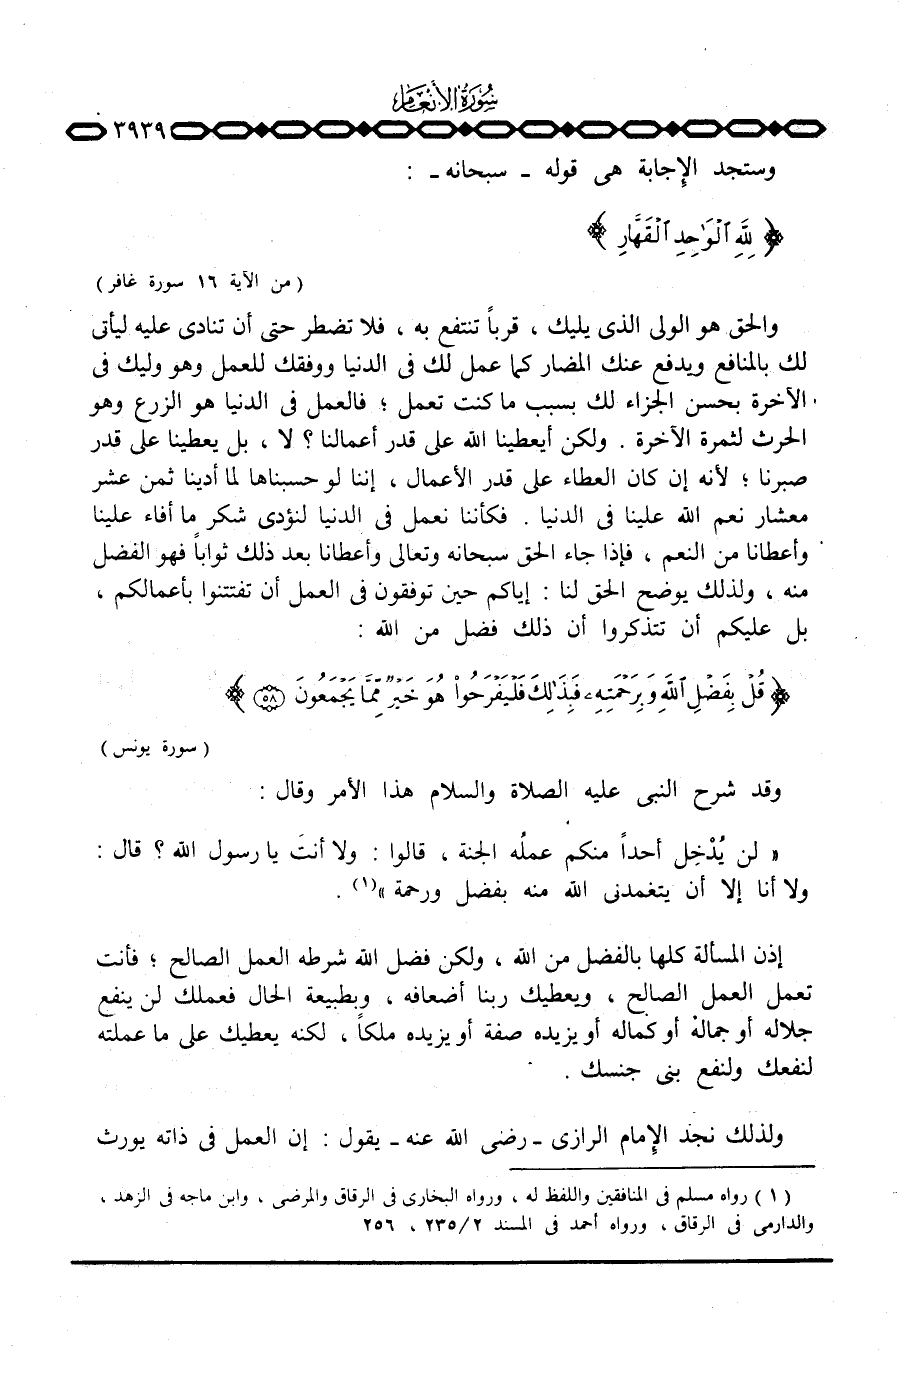 سورة الأنعام
٣٩٣٩
وستجد الإجابة هى قوله - سبحانه - :
﴿ لِلَّهِ ٱلْوَٰحِدِ ٱلْقَهَّارِ ﴾
( من الآية ١٦ سورة غافر )
والحق هو الولى الذى يليك ، قرباً تنتفع به ، فلا تضطر حتى أن تنادى عليه ليأتى
لك بالمنافع ويدفع عنك المضار كما عمل لك فى الدنيا ووفقك للعمل وهو وليك فى
الآخرة بحسن الجزاء لك بسبب ما كنت تعمل ؛ فالعمل فى الدنيا هو الزرع وهو
الحرث لثمرة الآخرة . ولكن أيعطينا الله على قدر أعمالنا ؟ لا ، بل يعطينا على قدر
صبرنا ؛ لأنه إن كان العطاء على قدر الأعمال ، إننا لو حسبناها لما أدينا ثمن عشر
معشار نعم الله علينا فى الدنيا . فكأننا نعمل فى الدنيا لنؤدى شكر ما أفاء علينا
وأعطانا من النعم ، فإذا جاء الحق سبحانه وتعالى وأعطانا بعد ذلك ثواباً فهو الفضل
منه ، ولذلك يوضح الحق لنا : إياكم حين توفقون فى العمل أن تفتتنوا بأعمالكم ،
بل عليكم أن تتذكروا أن ذلك فضل من الله :
﴿ قُلْ بِفَضْلِ ٱللَّهِ وَبِرَحْمَتِهِۦ فَبِذَٰلِكَ فَلْيَفْرَحُوا۟ هُوَ خَيْرٌ مِّمَّا يَجْمَعُونَ ٥٨ ﴾
( سورة يونس )
وقد شرح النبى عليه الصلاة والسلام هذا الأمر وقال :
« لن يُدْخِل أحداً منكم عملُه الجنة ، قالوا : ولا أنتَ يا رسول الله ؟ قال :
ولا أنا إلا أن يتغمدنى الله منه بفضل ورحمة »(١) .
إذن المسألة كلها بالفضل من الله ، ولكن فضل الله شرطه العمل الصالح ؛ فأنت
تعمل العمل الصالح ، ويعطيك ربنا أضعافه ، وبطبيعة الحال فعملك لن ينفع
جلاله أو جماله أو كماله أو يزيده صفة أو يزيده ملكاً ، لكنه يعطيك على ما عملته
لنفعك ولنفع بنى جنسك .
ولذلك نجد الإمام الرازى - رضى الله عنه - يقول : إن العمل فى ذاته يورث
( ١ ) رواه مسلم فى المنافقين واللفظ له ، ورواه البخارى فى الرقاق والمرضى ، وابن ماجه فى الزهد ،
والدارمى فى الرقاق ، ورواه أحمد فى المسند ٢٣٥/٢ ، ٢٥٦